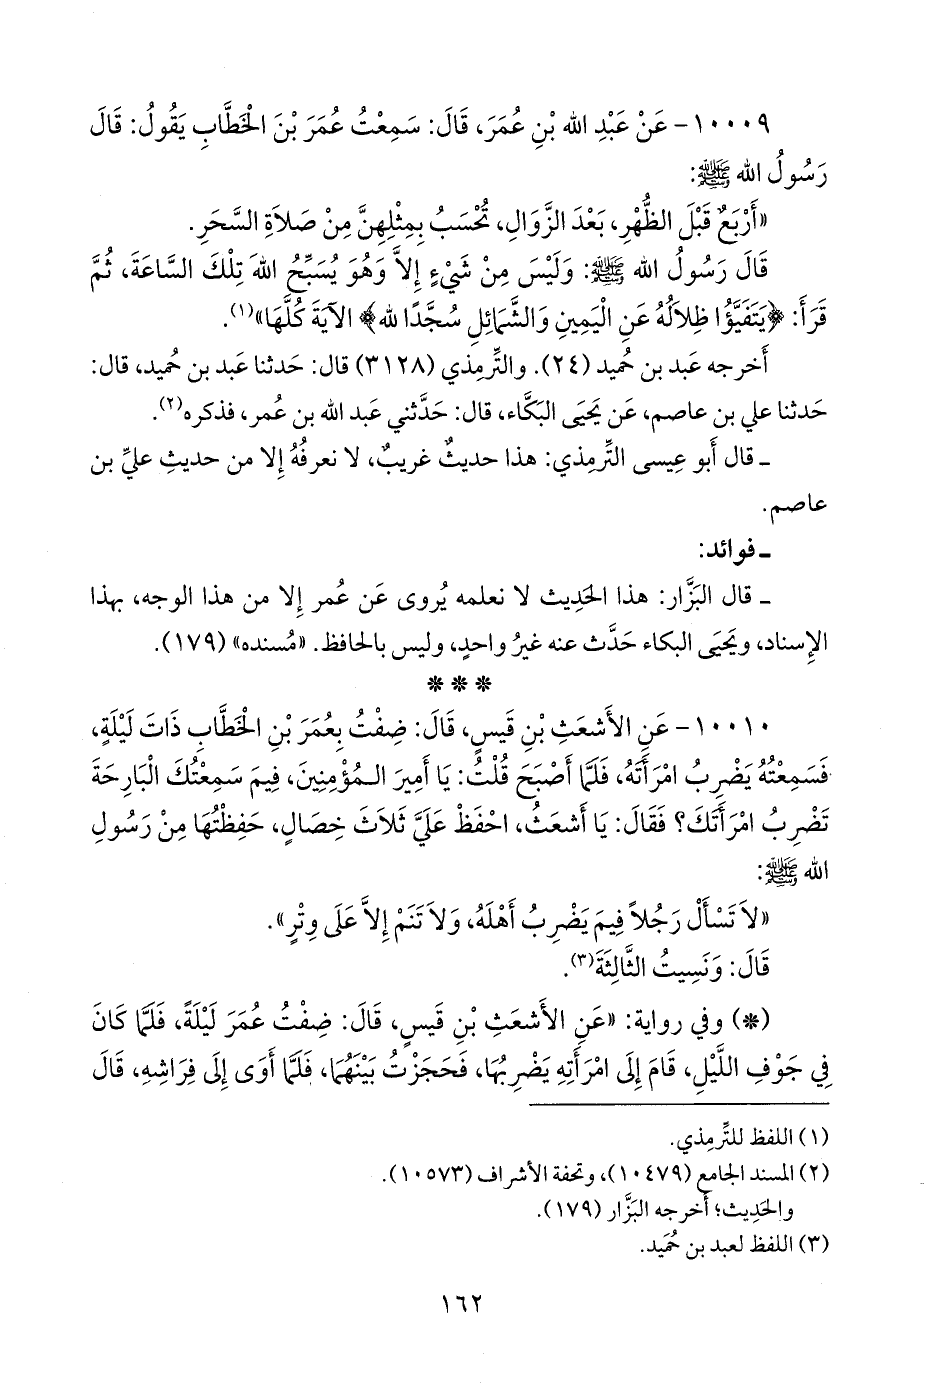 ١٠٠٠٩- عَنْ عَبْدِ الله بْنِ عُمَرَ، قَالَ: سَمِعْتُ عُمَرَ بْنَ الْخَطَّابِ يَقُولُ: قَالَ
رَسُولُ الله ﷺ:
«أَرْبَعٌ قَبْلَ الظُّهْرِ، بَعْدَ الزَّوَالِ، تُحْسَبُ بِمِثْلِهِنَّ مِنْ صَلاَةِ السَّحَرِ.
قَالَ رَسُولُ الله ﷺ: وَلَيْسَ مِنْ شَيْءٍ إِلاَّ وَهُوَ يُسَبِّحُ اللهَ تِلْكَ السَّاعَةَ، ثُمَّ
قَرَأَ: ﴿يَتَفَيَّؤُا ظِلاَلُهُ عَنِ الْيَمِينِ وَالشَّمَائِلِ سُجَّدًا لله﴾ الآيَةَ كُلَّهَا»(١).
أَخرجه عَبد بن حُميد (٢٤). والتِّرمِذي (٣١٢٨) قال: حَدثنا عَبد بن حُميد، قال:
حَدثنا علي بن عاصم، عَن يَحيَى البَكَّاء، قال: حَدَّثني عَبد الله بن عُمر، فذكره(٢).
ـ قال أَبو عِيسى التِّرمِذي: هذا حديثٌ غريبٌ، لا نعرفُهُ إِلا من حديثِ عليِّ بن
عاصم.
ـ فوائد:
ـ قال البَزَّار: هذا الحَدِيث لا نعلمه يُروى عَن عُمر إِلا من هذا الوجه، بهذا
الإِسناد، ويَحيَى البكاء حَدَّث عنه غيرُ واحدٍ، وليس بالحافظ. «مُسنده» (١٧٩).
* * *
١٠٠١٠- عَنِ الأَشعَثِ بْنِ قَيسٍ، قَالَ: ضِفْتُ بِعُمَرَ بْنِ الْخَطَّابِ ذَاتَ لَيْلَةٍ،
فَسَمِعْتُهُ يَضْرِبُ امْرَأَتَهُ، فَلَمَّا أَصْبَحَ قُلْتُ: يَا أَمِيرَ الْمُؤْمِنِينَ، فِيمَ سَمِعْتُكَ الْبَارِحَةَ
تَضْرِبُ امْرَأَتَكَ؟ فَقَالَ: يَا أَشعَثُ، احْفَظْ عَلَيَّ ثَلاَثَ خِصَالٍ، حَفِظْتُهَا مِنْ رَسُولِ
الله ﷺ:
«لاَ تَسْأَلْ رَجُلاً فِيمَ يَضْرِبُ أَهْلَهُ، وَلاَ تَنَمْ إِلاَّ عَلَى وِتْرٍ».
قَالَ: وَنَسِيتُ الثَّالِثَةَ(٣).
(*) وفي رواية: «عَنِ الأَشعَثِ بْنِ قَيسٍ، قَالَ: ضِفْتُ عُمَرَ لَيْلَةً، فَلَمَّا كَانَ
فِي جَوْفِ اللَّيْلِ، قَامَ إِلَى امْرَأَتِهِ يَضْرِبُهَا، فَحَجَزْتُ بَيْنَهُمَا، فَلَمَّا أَوَى إِلَى فِرَاشِهِ، قَالَ
(١) اللفظ للتِّرمِذي.
(٢) المسند الجامع (١٠٤٧٩)، وتحفة الأشراف (١٠٥٧٣).
والحَدِيث؛ أخرجه البَزَّار (١٧٩).
(٣) اللفظ لعبد بن حُمَيد.
١٦٢